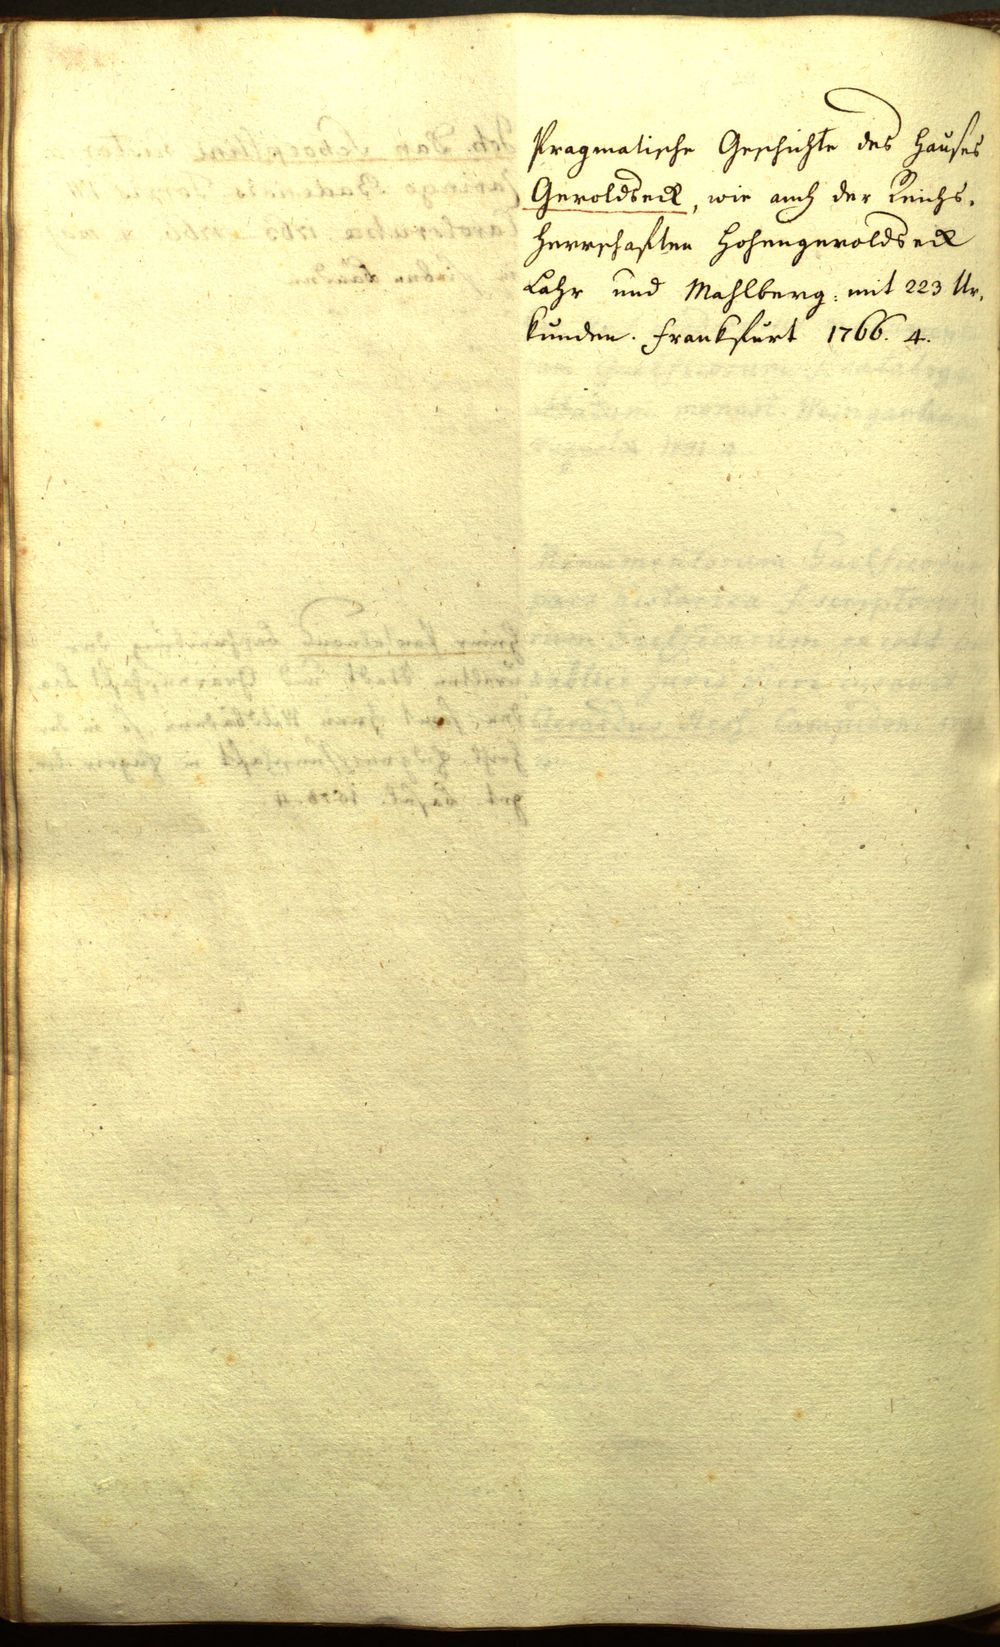 Pragmatische Geschichte des Hauses
Geroldseck, wie auch der Reichs-
herrschaften Hohengeroldseck
Lahr und Mahlberg: mit 223 Ur-
kunden. Frankfurt 1766. 4.